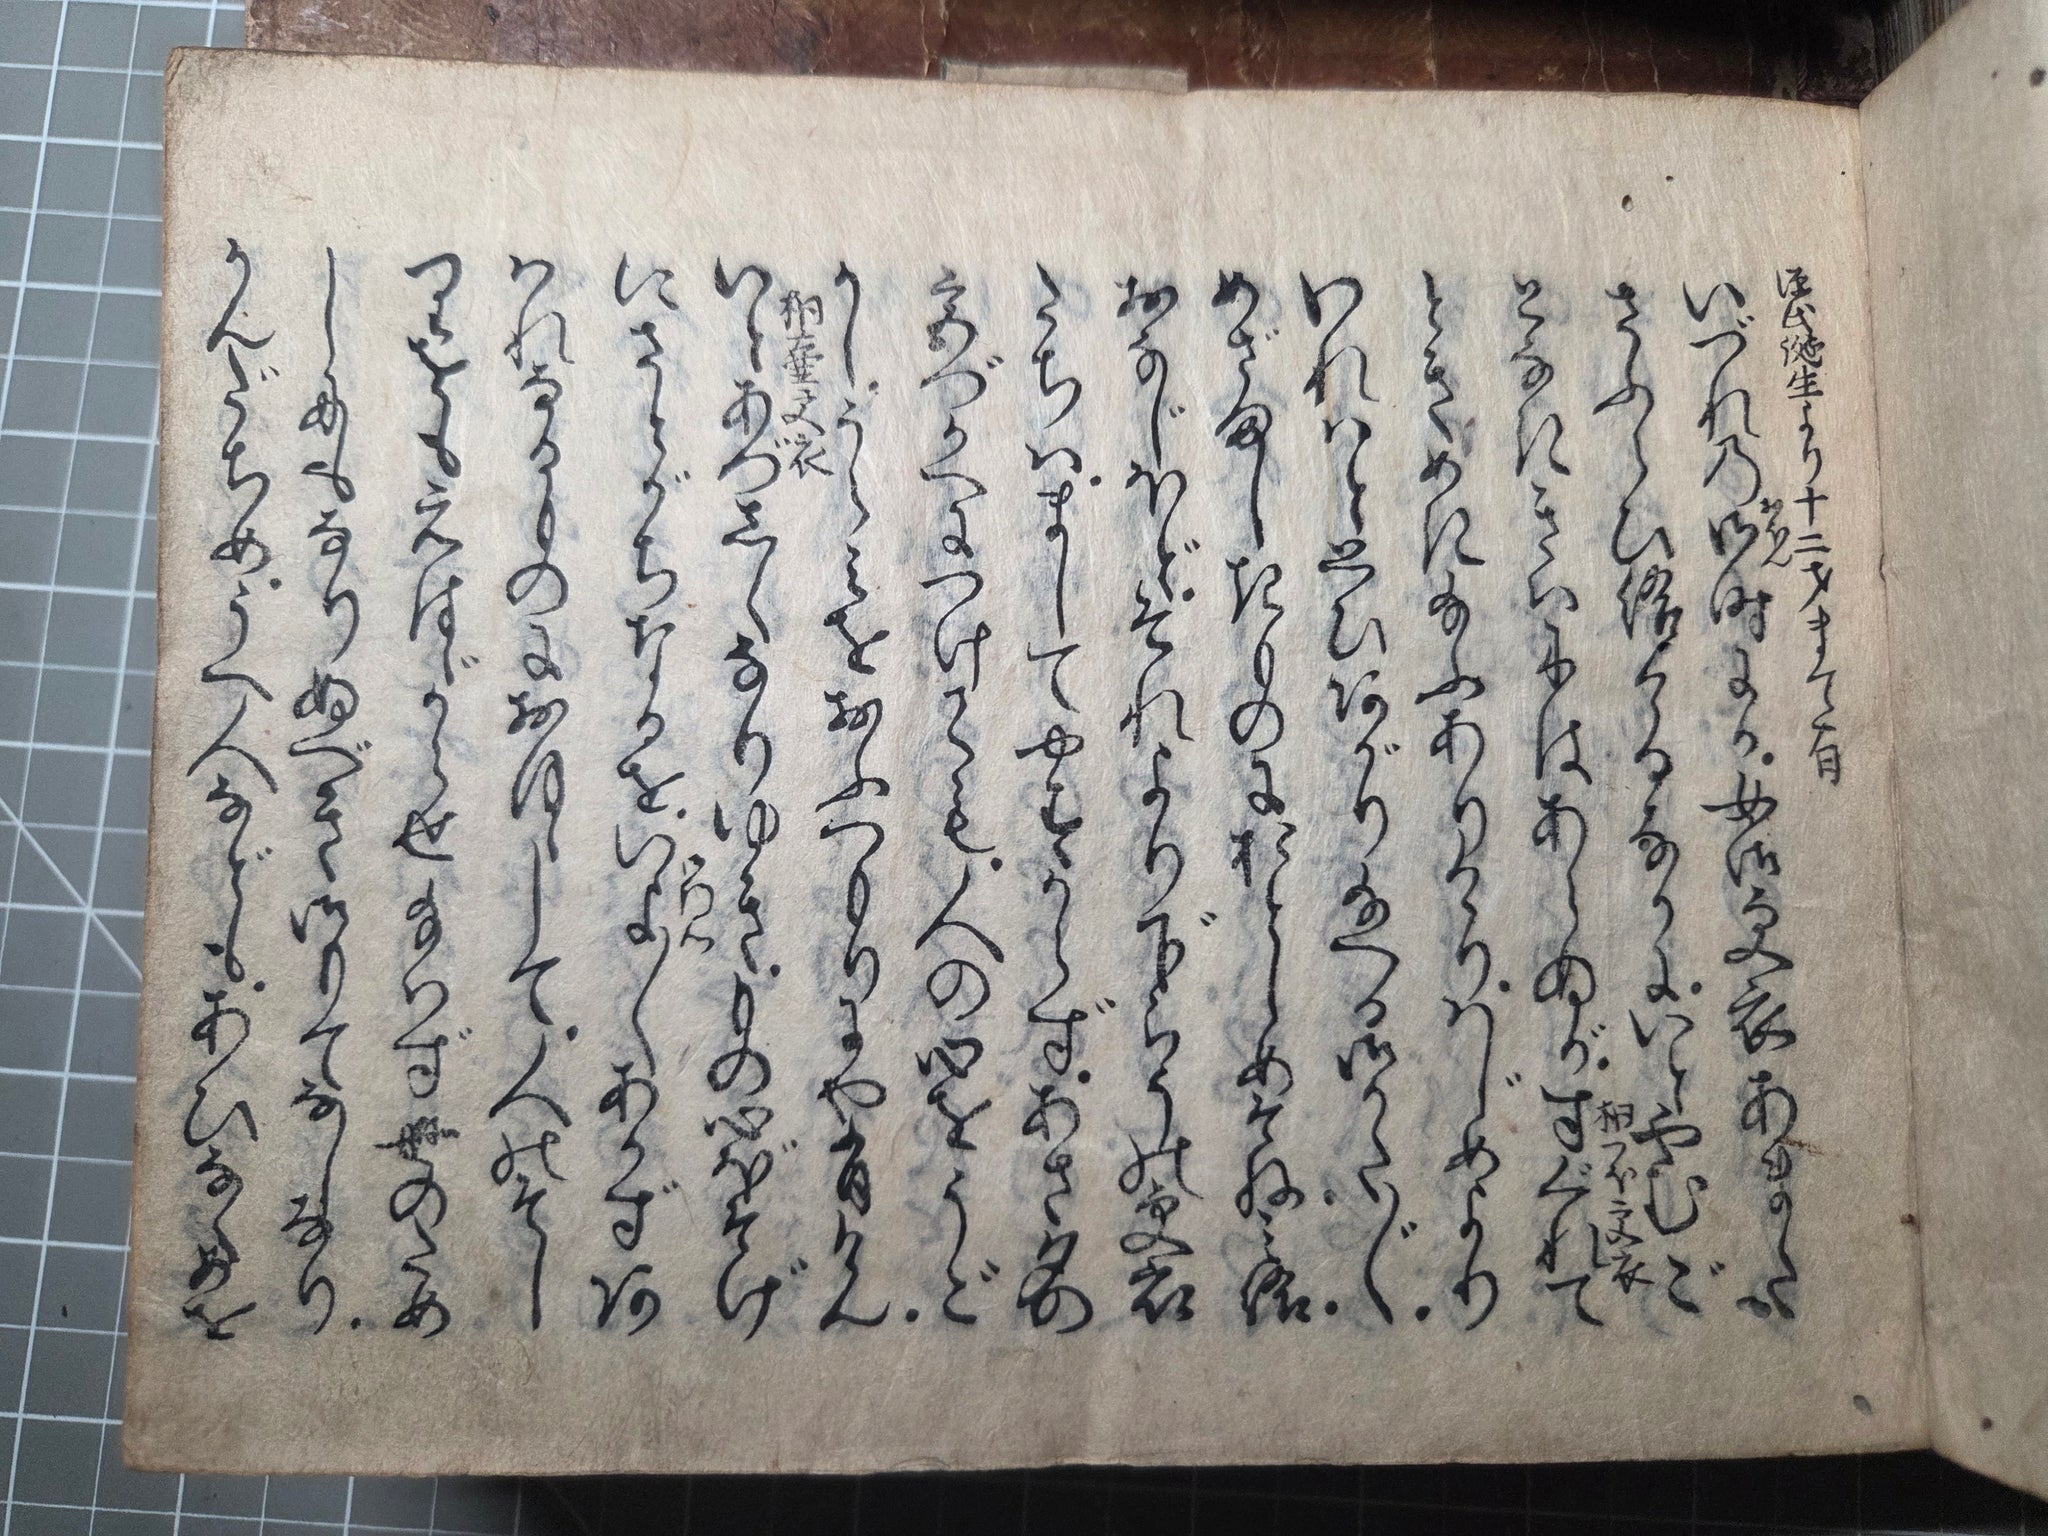 源氏誕生より十二才まて有
いづれの御時にか。女御更衣あまた
おほん
さふらひ給けるなかに。いとやむご
となきゝはにはあらぬが。すぐれて
桐つほ更衣
ときめき給ふありけり。はじめより
われはと思ひあがり給へる御かた〴〵。
めざましきものにおとしめそねみ給。
おなじほど。それより下らうの更衣
たちは。ましてやすからず。あさ夕の
宮づかへにつけても。人の心をうご
かし。うらみをおふつもりにや有けん。
桐壷更衣
いとあづしくなりゆき。もの心ぼそげ
にさとがちなるを。いよ〳〵あかずあ
はれなるものにおぼして。人のそし
りをもえはゞからせ給はず世のため
しにもなりぬべき御もてなしなり。
かんだちめ。うへ人なども。あひなくめを